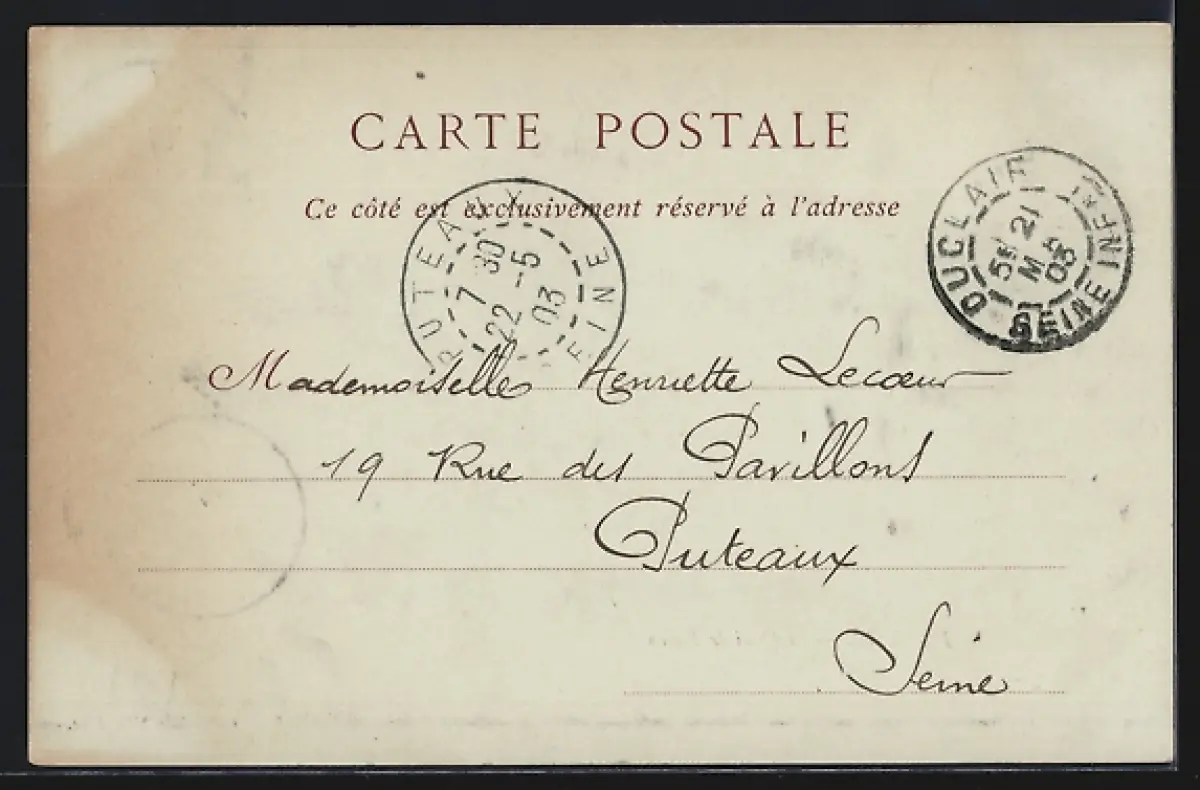 CARTE POSTALE
Ce côté est exclusivement réservé à l'adresse
PUTEAUX SEINE
7 30
22 -5
03
DUCLAIR SEINE INFRE
21
03
Mademoiselle Henriette Lecœur
19 Rue des Pavillons
Puteaux
Seine